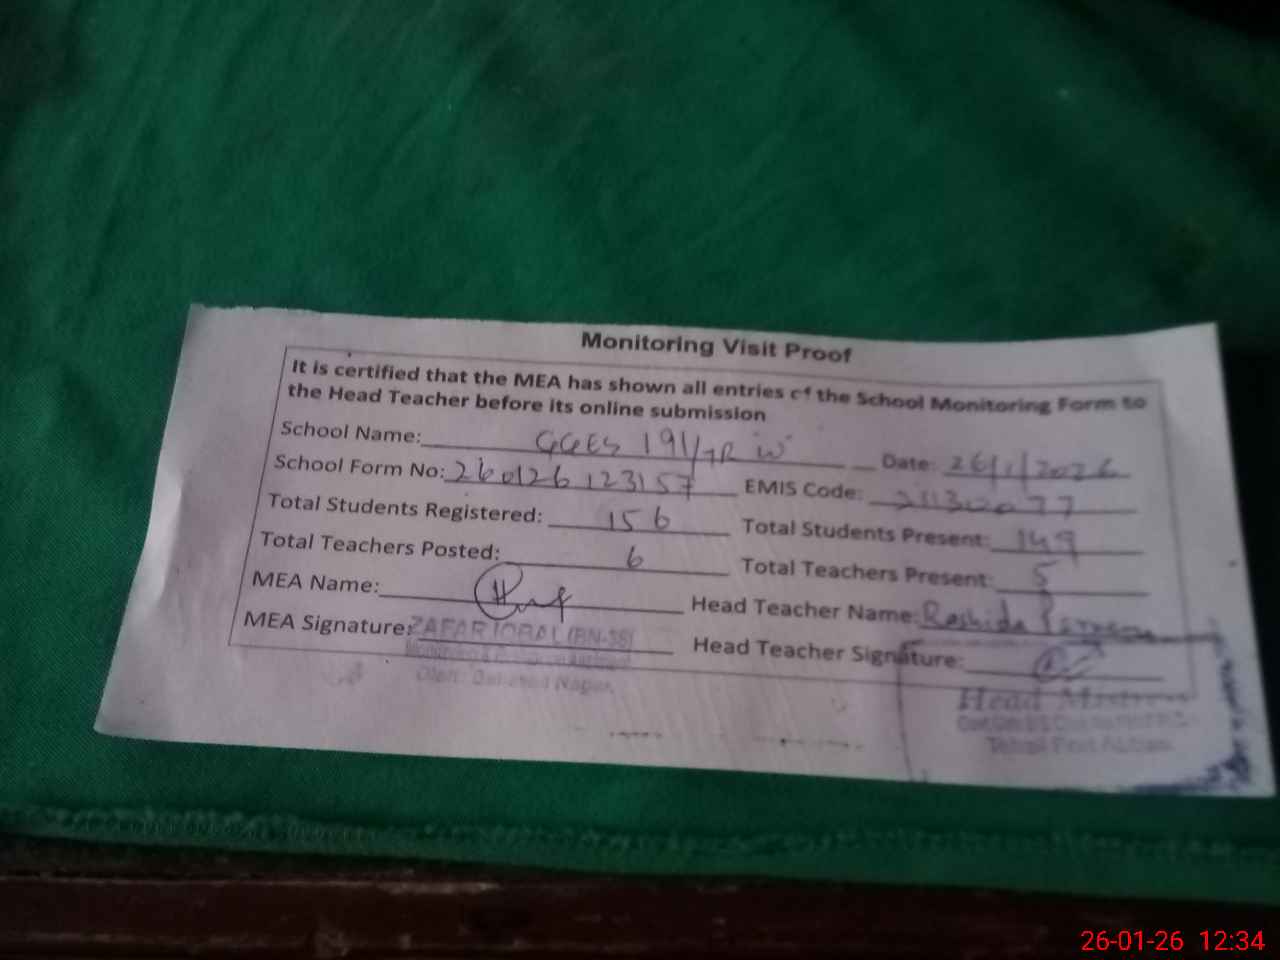 Monitoring Visit Proof
It is certified that the MEA has shown all entries of the School Monitoring Form to
the Head Teacher before its online submission
School Name: GGES 191/7R W Date: 26/1/2026
School Form No: 260126123157 EMIS Code: 31130077
Total Students Registered: 156 Total Students Present: 149
Total Teachers Posted: 6 Total Teachers Present: 5
MEA Name: Head Teacher Name: Rashida Parveen
MEA Signature: ZAFAR IQBAL (BN-38)
Head Teacher Signature:
Head Mistress
Tehsil Fort Abbas
26-01-26 12:34